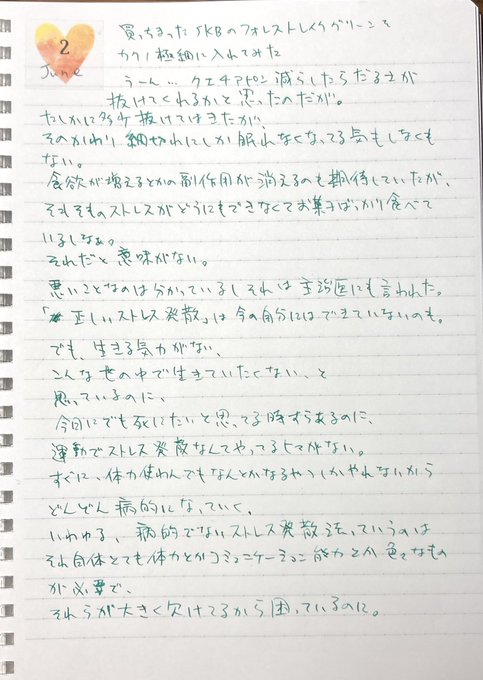 2
June
買っちまったSKBのフォレストレイクグリーンを
カクノ極細に入れてみた
うーん…クエチアピン減らしたらだるさが
抜けてくれるかと思ったのだが。
たしかに多少抜けてはきたが、
そのかわり細切れにしか眠れなくなってる気もしなくも
ない。
食欲が増えるとかの副作用が消えるのも期待していたが、
そもそものストレスがどうにもできなくてお菓子ばっかり食べて
いるしなぁ。
それだと意味がない。
悪いことなのは分かっているしそれは主治医にも言われた。
「正しいストレス発散」は今の自分にはできていないのも。
でも、生きる気力がない、
こんな世の中で生きていたくない、と
思っているのに、
今日にでも死にたいと思ってる時すらあるのに、
運動でストレス発散なんてやってるヒマがない。
すぐに、体力使わんでもなんとかなるやつしかやれないから
どんどん病的になっていく。
いわゆる、病的でないストレス発散法っていうのは
それ自体とても体力とかコミュニケーション能力とか色々なもの
が必要で、
それらが大きく欠けてるから困っているのに。